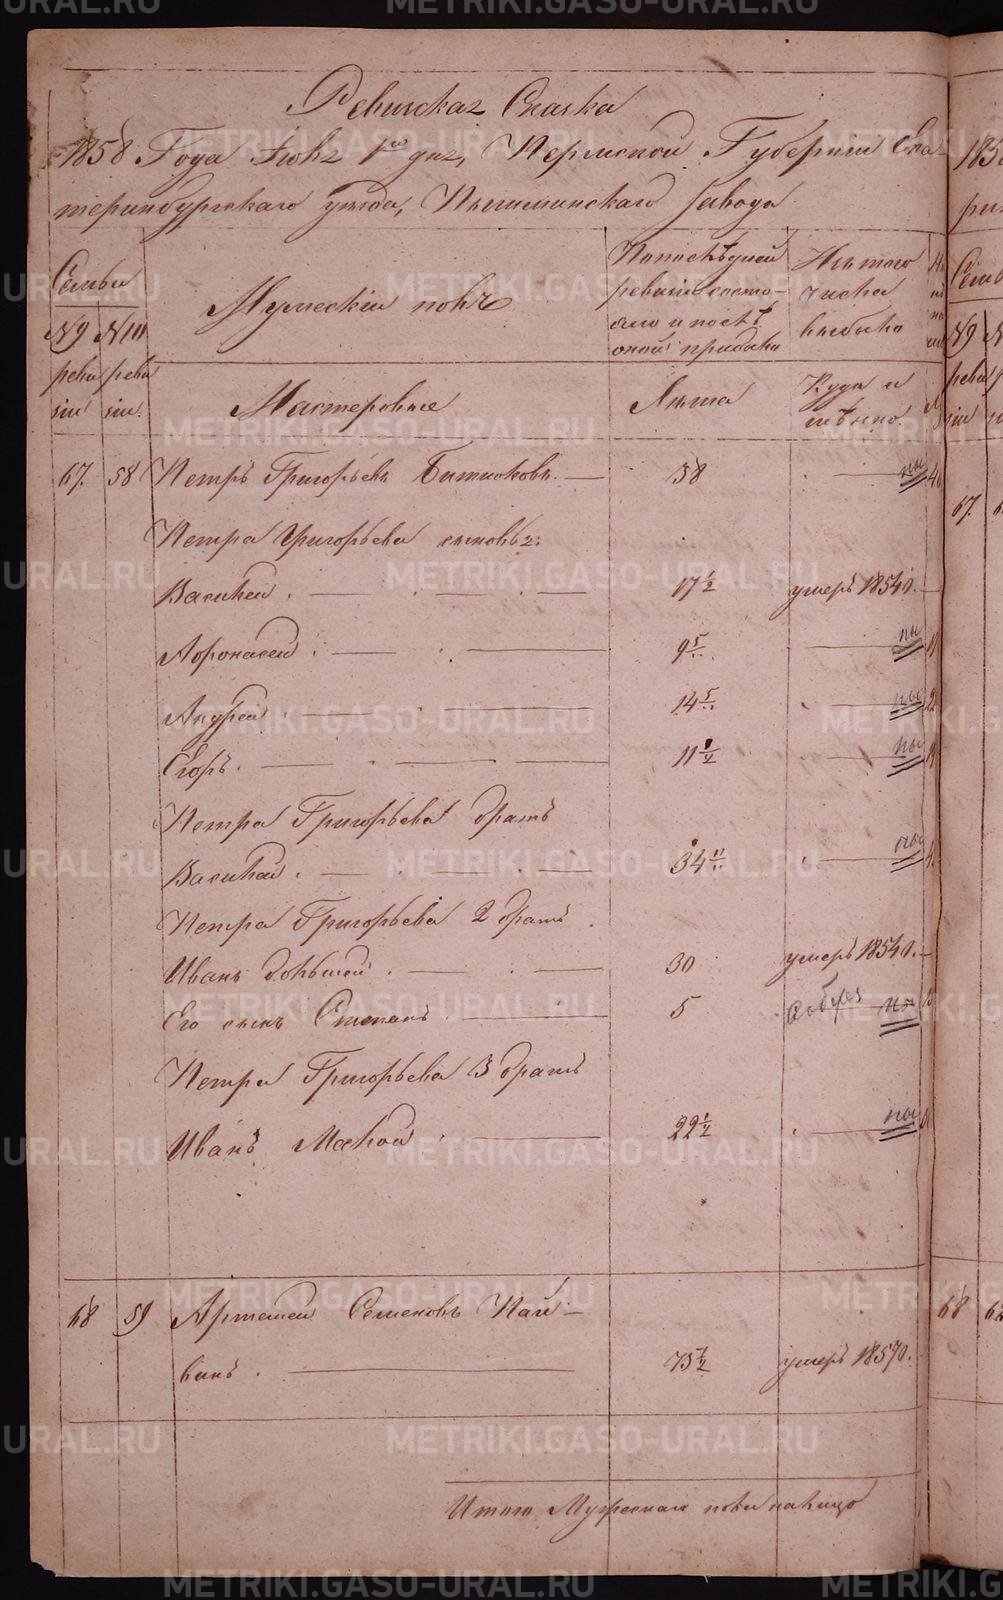 Ревижская Сказка
1858 Года Июня 1го дня, Пермской Губернiи Ека-
теринбургскаго уѣзда, Пышминскаго Завода
Семьи
Мужескiй полъ
По послѣдней
ревизiи состо-
яло и послѣ
оной прибыло
Изъ того
числа
выбыло
N 9 N 10
реви реви
зiи зiи.
Мастеровые
Лѣта
Куда и
67. 58 Петръ Григорьевъ 38 ны
Петра Григорьева сыновья:
Василей. 17 1/2 умеръ 1854 г.
Афонасей. 9 5/.. ны
Андрей. 14 5/.. ны
Егоръ. 11 1/2 ны
Петра Григорьева братъ
Василей. 34 11/.. ны
Петра Григорьева 2 братъ
Иванъ большей. 30 умеръ 1854 г.
Его сынъ Степанъ 5
Петра Григорьева 3 братъ
Иванъ Малой 22 1/2 ны
68 59 Артемей Семеновъ Пай-
винъ. 73 1/2 умеръ 1857 г.
Итого Мужескаго пола на лицо
METRIKI.GASO-URAL.RU